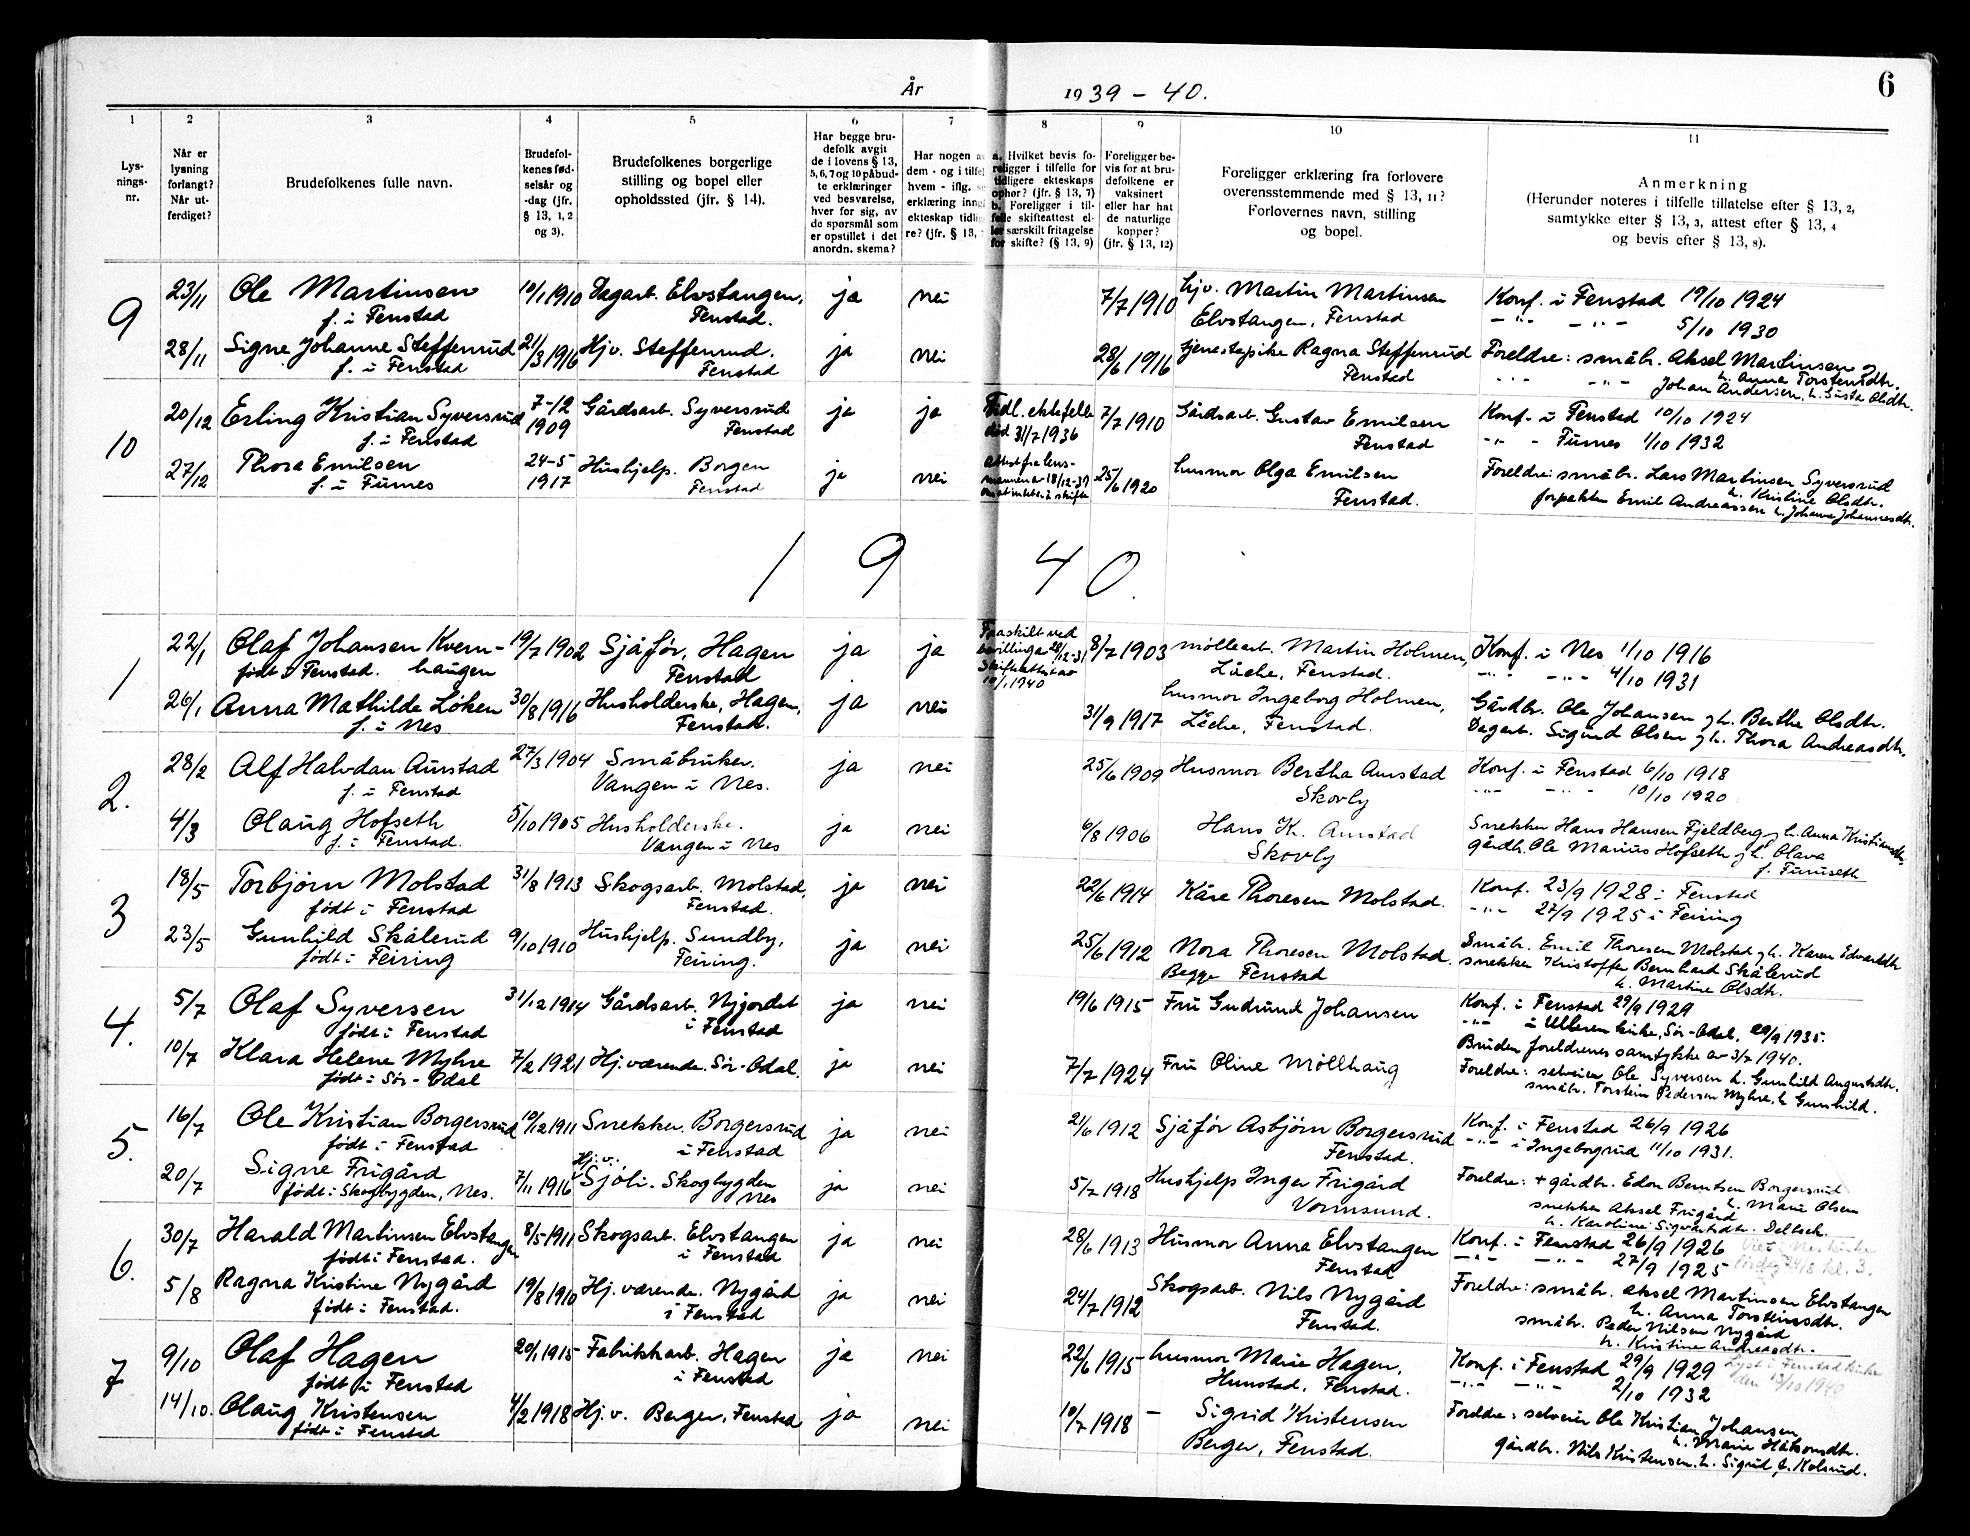 År 1939 - 40.
6
1 2 3 4 5 6 7 8 9 10 11
Lys-
nings-
nr.
Når er
lysning
forlangt?
Når ut-
ferdiget?
Brudefolkenes fulle navn.
Brudefol-
kenes fød-
selsår og
-dag (jfr.
§ 13, 1, 2
og 3).
Brudefolkenes borgerlige
stilling og bopel eller
opholdssted (jfr. § 14).
Har begge bru-
defolk avgit
de i lovens § 13,
5, 6, 7 og 10 påbud-
te erklæringer
ved besvarelse,
hver for sig, av
de spørsmål som
er opstillet i det
anordn. skema?
Har nogen a
dem - og i tilfel
hvem - iflg. s
erklæring inng
ekteskap tidli
re? (jfr. § 13,
a. Hvilket bevis fo-
religger i tilfelle for
tidligere ekteskaps
ophør? (jfr. § 13, 7)
b. Foreligger i til-
felle skifteattest el-
ler særskilt fritagelse
for skifte? (§ 13, 9)
Foreligger be-
vis for at bru-
defolkene er
vaksinert
eller har hat
de naturlige
kopper?
(jfr. § 13, 12)
Foreligger erklæring fra forlovere
overensstemmende med § 13, 11?
Forlovernes navn, stilling
og bopel.
Anmerkning
(Herunder noteres i tilfelle tillatelse efter § 13, 2,
samtykke efter § 13, 3, attest efter § 13, 4
og bevis efter § 13, 8).
9
23/11 Ole Martinsen 10/1 1910 Dagarb. Elvstangen, ja nei 7/7 1910 hjv. Martin Martinsen Konf. i Fenstad 19/10 1924
f. i Fenstad Fenstad. Elvstangen, Fenstad -"- -"- 5/10 1930
28/11 Signe Johanne Steffenrud 21/3 1916 Hjv. Steffenrud. ja nei 28/6 1916 tjenestepike Ragna Steffenrud Foreldre: småbr. Aksel Martinsen
f. i Fenstad Fenstad Fenstad h. Anna Torstensdtr.
Johan Andersen, h. Gusta Olsdtr.
10
20/12 Erling Kristian Syversrud 7-12 1909 Gårdsarb. Syversrud ja ja Tidl. ektefelle 7/7 1910 Gårdsarb. Gustav Emilsen Konf. i Fenstad 10/10 1924
f. i Fenstad Fenstad død 31/7 1936 Fenstad -"- - Furnes 1/10 1932
27/12 Thora Emilsen 24-5 1917 Hushjelp. Borgen ja nei Attest fra lens- 25/6 1920 husmor Olga Emilsen Foreldre: småbr. Lars Martinsen Syversrud
f. i Furnes Fenstad mannen av 18/12-39 Fenstad. h. Kristine Olsdtr.
forpakter Emil Andreassen h. Johanne Johannesdtr.
1 9 4 0.
1
22/1 Olaf Johansen Kvern- 19/7 1902 Sjåfør, Hagen ja ja Fraskilt ved 8/7 1903 møllearb. Martin Holmen, Konf. i Nes 1/10 1916
født i Fenstad. haugen Fenstad bevilling av 28/12-31 Låche, Fenstad. -"- -"- 4/10 1931
Skifteattest av
10/1 1940
26/1 Anna Mathilde Løken 30/8 1916 Husholderske, Hagen, ja nei 31/9 1917 husmor Ingeborg Holmen, Gårdbr. Ole Johansen og h. Berthe Olsdtr.
f. i Nes Fenstad. Låche, Fenstad. Dagarb. Sigurd Olsen og h. Thora Andreasdtr.
2.
28/2 Alf Halvdan Aurstad 27/3 1904 Småbruker. ja nei 25/6 1909 Husmor Bertha Aurstad Konf. i Fenstad 6/10 1918
f. i Fenstad Vangen i Nes. Skovly -"- -"- 10/10 1920
4/3 Olaug Hofseth 5/10 1905 Husholderske. ja nei 6/8 1906 Hans K. Aurstad Snekker Hans Hansen Fjeldberg og h. Anna Kristiansdtr.
f. i Fenstad. Vangen i Nes Skovly gårdbr. Ole Marius Hofseth og h. Olava
f. Furuseth
3
18/5 Torbjørn Molstad 31/8 1913 Skogsarb. Molstad, ja nei 22/6 1914 Kåre Thoresen Molstad. Konf. 23/9 1928 i Fenstad
født i Fenstad Fenstad. -"- 27/9 1925 i Feiring
23/5 Gunhild Skålerud 9/10 1910 Hushjelp. Sundby, ja nei 25/6 1912 Nora Thoresen Molstad. Småbr. Emil Thoresen Molstad og h. Karen Edvardsdtr
født i Feiring Feiring. Begge Fenstad snekker Kristoffer Bernhard Skålerud
h. Martine Olsdtr.
4.
5/7 Olaf Syversen 31/12 1914 Gårdsarb. Nyjordet ja nei 19/6 1915 Fru Gudrund Johansen Konf. i Fenstad 29/9 1929
født i Fenstad i Fenstad -"- i Ulleren kirke, Sør-Odal, 29/9 1935.
Bruden foreldrenes samtykke av 3/7 1940.
10/7 Klara Helene Myhre 7/2 1921 Hj. værende. Sør-Odal. ja nei 7/7 1924 Fru Oline Möllhaug Foreldre: selveier Ole Syversen h. Gunhild Augustsdtr.
født i Sør-Odal småbr. Torstein Pedersen Myhre, h. Gunhild.
5.
16/7 Ole Kristian Borgersrud 10/12 1911 Snekker. Borgersrud ja nei 21/6 1912 Sjåfør Asbjørn Borgersrud Konf. i Fenstad 26/9 1926
født i Fenstad i Fenstad Fenstad. -"- i Ingeborgrud 11/10 1931.
20/7 Signe Frigård 7/11 1916 Hj.v. Sjøli. Skogbygden ja nei 5/7 1918 Hushjelp Inger Frigård Foreldre: + gårdbr. Edon Berntsen Borgersrud
født i Skogbygden, Nes. Nes Vormsund. h. Marie Olsen
snekker Aksel Frigård
h. Karoline Sigvartsdtr.
6.
30/7 Harald Martinsen Elvstangen 8/5 1911 Skogsarb. Elvstangen ja nei 28/6 1913 Husmor Anna Elvstangen Konf. i Fenstad 26/9 1926
født i Fenstad. i Fenstad Fenstad -"- -"- 27/9 1925
5/8 Ragna Kristine Nygård 19/8 1910 Hj. værende. Nygård ja nei 24/7 1912 Skogsarb. Nils Nygård Foreldre: småbr. Aksel Martinsen Elvstangen
født i Fenstad. i Fenstad Fenstad. h. Anna Torstensdtr.
småbr. Peder Nilsen Nygård
h. Kristine Andreasdtr.
7
9/10 Olaf Hagen 20/1 1915 Fabrikkarb. Hagen ja nei 22/6 1915 husmor Marie Hagen, Konf. i Fenstad 29/9 1929 Lyst i Fenstad kirke
født i Fenstad i Fenstad Hunstad, Fenstad. -"- -"- 2/10 1932 den 13/10 1940
14/10. Olaug Kristensen 4/2 1918 Hj. v. Berger, Fenstad ja nei 10/7 1918 - Sigrid Kristensen Foreldre: selveier Ole Kristian Johansen
født i Fenstad Berger, Fenstad. h. Marie Håkonsdtr.
gårdbr. Nils Kristensen, h. Sigrid f. Kolsrud.